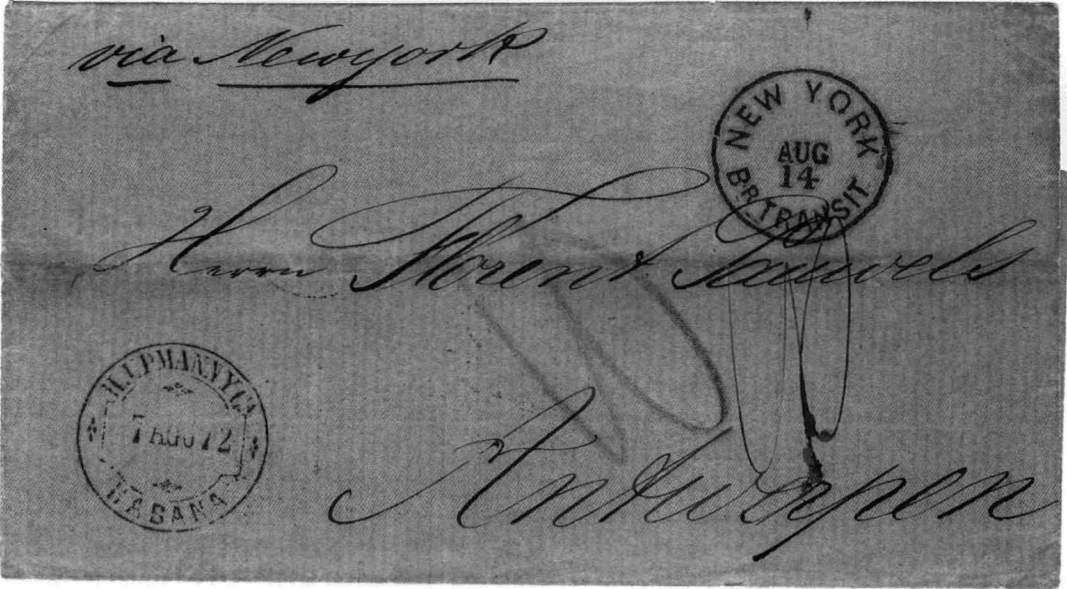 via Newyork
NEW YORK
AUG
14
BR. TRANSIT
Herrn Florent Pauwels
10
H. UPMANN Y CA
7 AGO 72
HABANA
Antwerpen